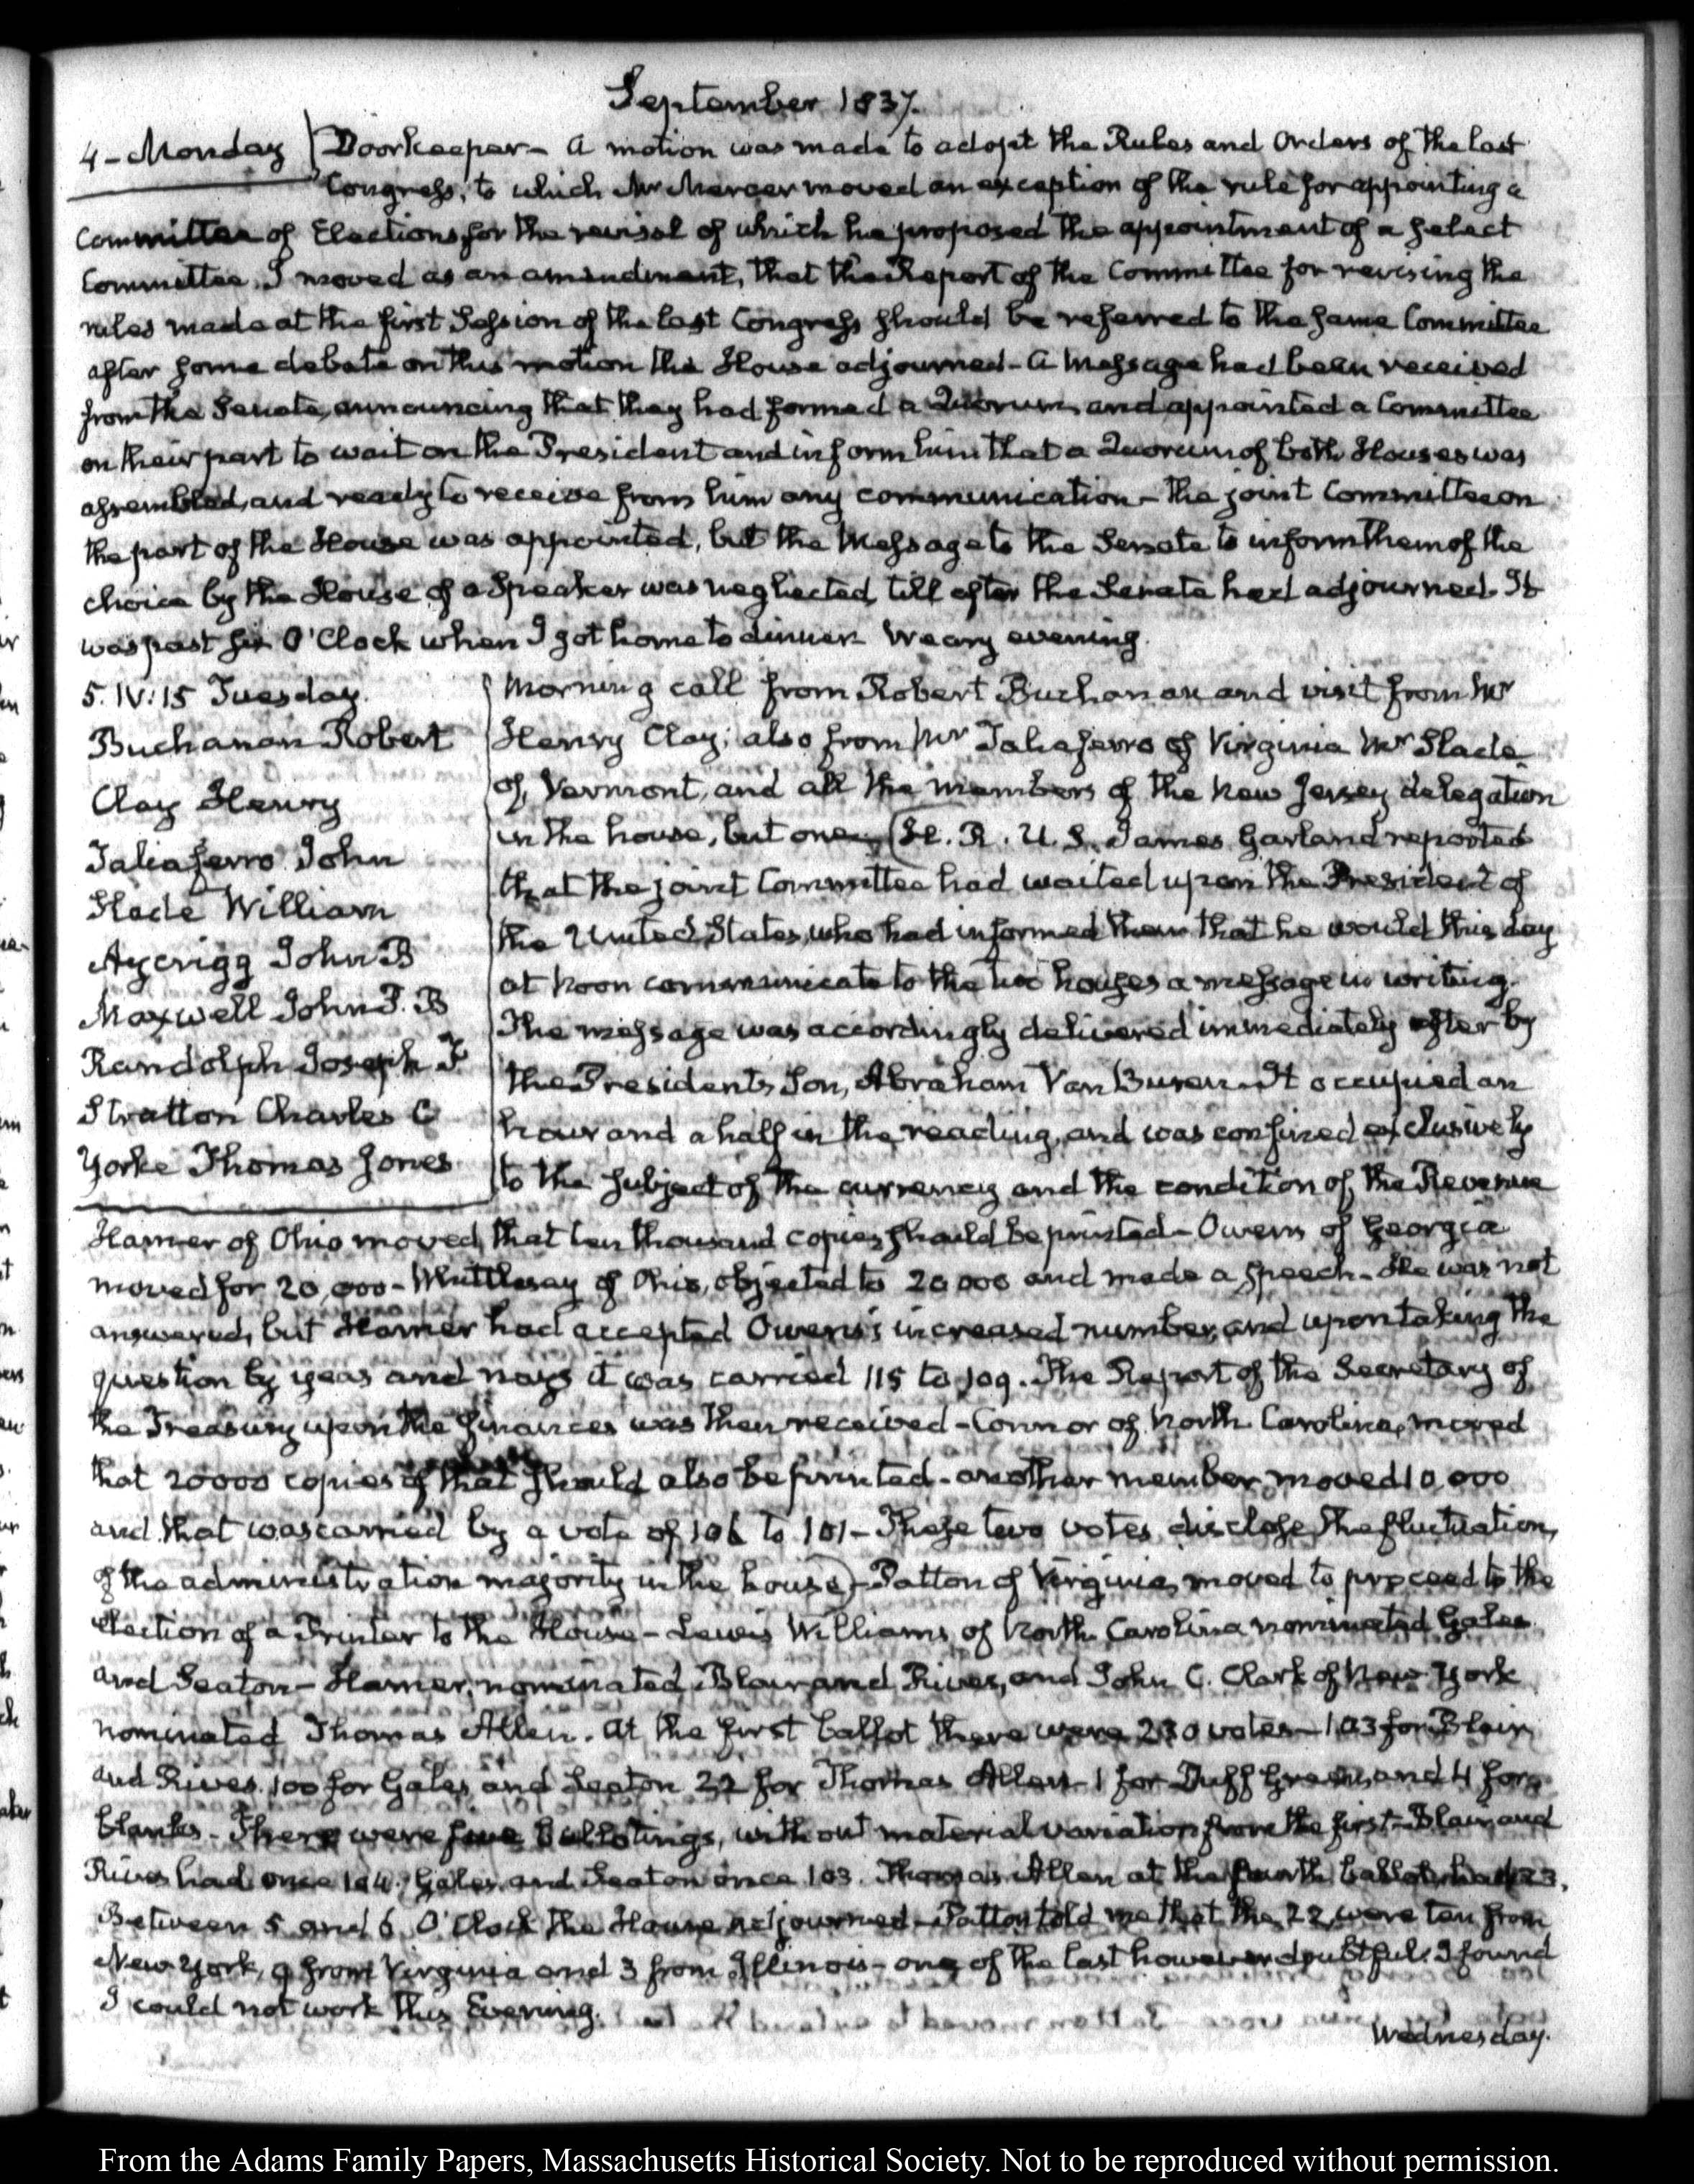 September 1837.
4 – Monday Doorkeeper – A motion was made to adopt the Rules and Orders of the last
Congress, to which Mr Mercer moved an exception of the rule for appointing a
Committee of Elections, for the revisal of which he proposed the appointment of a select
Committee. I moved as an amendment, that the Report of the Committee for revising the
rules made at the first Session of the last Congress should be referred to the same Committee
after some debate on this motion the House adjourned – A Message had been received
from the Senate, announcing that they had formed a Quorum, and appointed a Committee
on their part to wait on the President and inform him that a Quorum of both Houses was
assembled, and ready to receive from him any communication – the joint Committee on
the part of the House was appointed, but the Message to the Senate to inform them of the
choice by the House of a Speaker was neglected till after the Senate had adjourned. It
was past six O'Clock when I got home to dinner. Weary evening.
5. IV:15 Tuesday.
Buchanan Robert
Clay Henry
Taliaferro John
Slade William
Aycrigg John B
Maxwell John P. B
Randolph Joseph F
Stratton Charles C
Yorke Thomas Jones
Morning call from Robert Buchanan and visit from Mr
Henry Clay; also from Mr Taliaferro of Virginia Mr Slade
of Vermont, and all the members of the New Jersey delegation
in the house, but one. (H. R. U. S. James Garland reported
that the joint Committee had waited upon the President of
the United States, who had informed them that he would this day
at Noon communicate to the two houses a message in writing.
The message was accordingly delivered immediately after by
the President's Son, Abraham Van Buren. It occupied an
hour and a half in the reading, and was confined exclusively
to the subject of the currency and the condition of the Revenue
Hamer of Ohio moved, that ten thousand copies should be printed – Owens of Georgia
moved for 20,000 – Whittlesey of Ohio, objected to 20 000 and made a speech – He was not
answered, but Hamer had accepted Owens's increased number, and upon taking the
question by yeas and nays it was carried 115 to 109. The Report of the Secretary of
the Treasury upon the finances was then received – Connor of North Carolina, moved
that 20000 copies of that should also be printed – another member moved 10,000
and that was carried by a vote of 106 to 101 – These two votes disclose the fluctuation,
of the administration majority in the house) – Patton of Virginia, moved to proceed to the
Election of a Printer to the House – Lewis Williams of North Carolina nominated Gales
and Seaton – Hamer, nominated Blair and Rives, and John C. Clark of New York
nominated Thomas Allen. At the first ballot there were 230 votes – 103 for Blair
and Rives. 100 for Gales and Seaton 22 for Thomas Allen – 1 for Duff Green, and 4 for
blanks – There were five ballotings, without material variation from the first – Blair and
Rives had once 104. Gales and Seaton once 103. Thomas Allen at the fourth ballot had 23.
Between 5 and 6 O'Clock the House adjourned – Patton told me that the 22 were ten from
New York, 9 from Virginia and 3 from Illinois – one of the last however doubtful. I found
I could not work this Evening.
Wednesday.
From the Adams Family Papers, Massachusetts Historical Society. Not to be reproduced without permission.